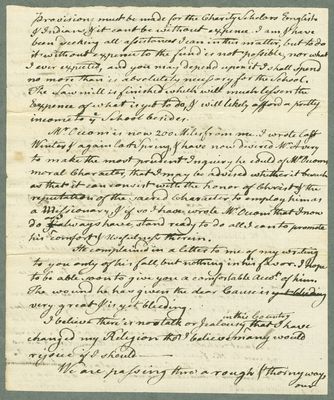 provision must be made for the Charity Scholars English
& Indian, & it cant be without expence. I am & have
been seeking all assistance I can in this matter, but to do
it without expence to the fund is not possible, nor what
I ever expected, and you may depend upon it I shall spend
no more than is absolutely necessary for the School.
The Sawmill is finished which will much lessen the
Expence of what is yet to do, & will likely afford a pretty
income to ye School besides.
Mr Occom is now 200 Miles from me. I wrote last
Winter & again last Spring, & have now desired Mr
to make the most prudent Inquiry he could of Mr Occom's
moral Character, that I may be advised whether it be such
as that it can consist with the honor of Christ & the
reputation of the sacred Character to employ him as
a Missionary, & if so I have wrote Mr Occom that I now
do & always have stood ready to do all I can to promote
his comfort & Usefulness therein.
He complained in a letter to me of my writing
to you only of his fall but nothing in his favor. I hope
to be able soon to give you a comfortable Acct. of him.
The wound he has given the dear Cause is yet bleeding
very great & is yet bleeding.
I believe there is no talk or Jealousy in this Country that I have
changed my Religion tho' I believe many would
rejoice if I should
We are passing thro' a rough & thorny way
our